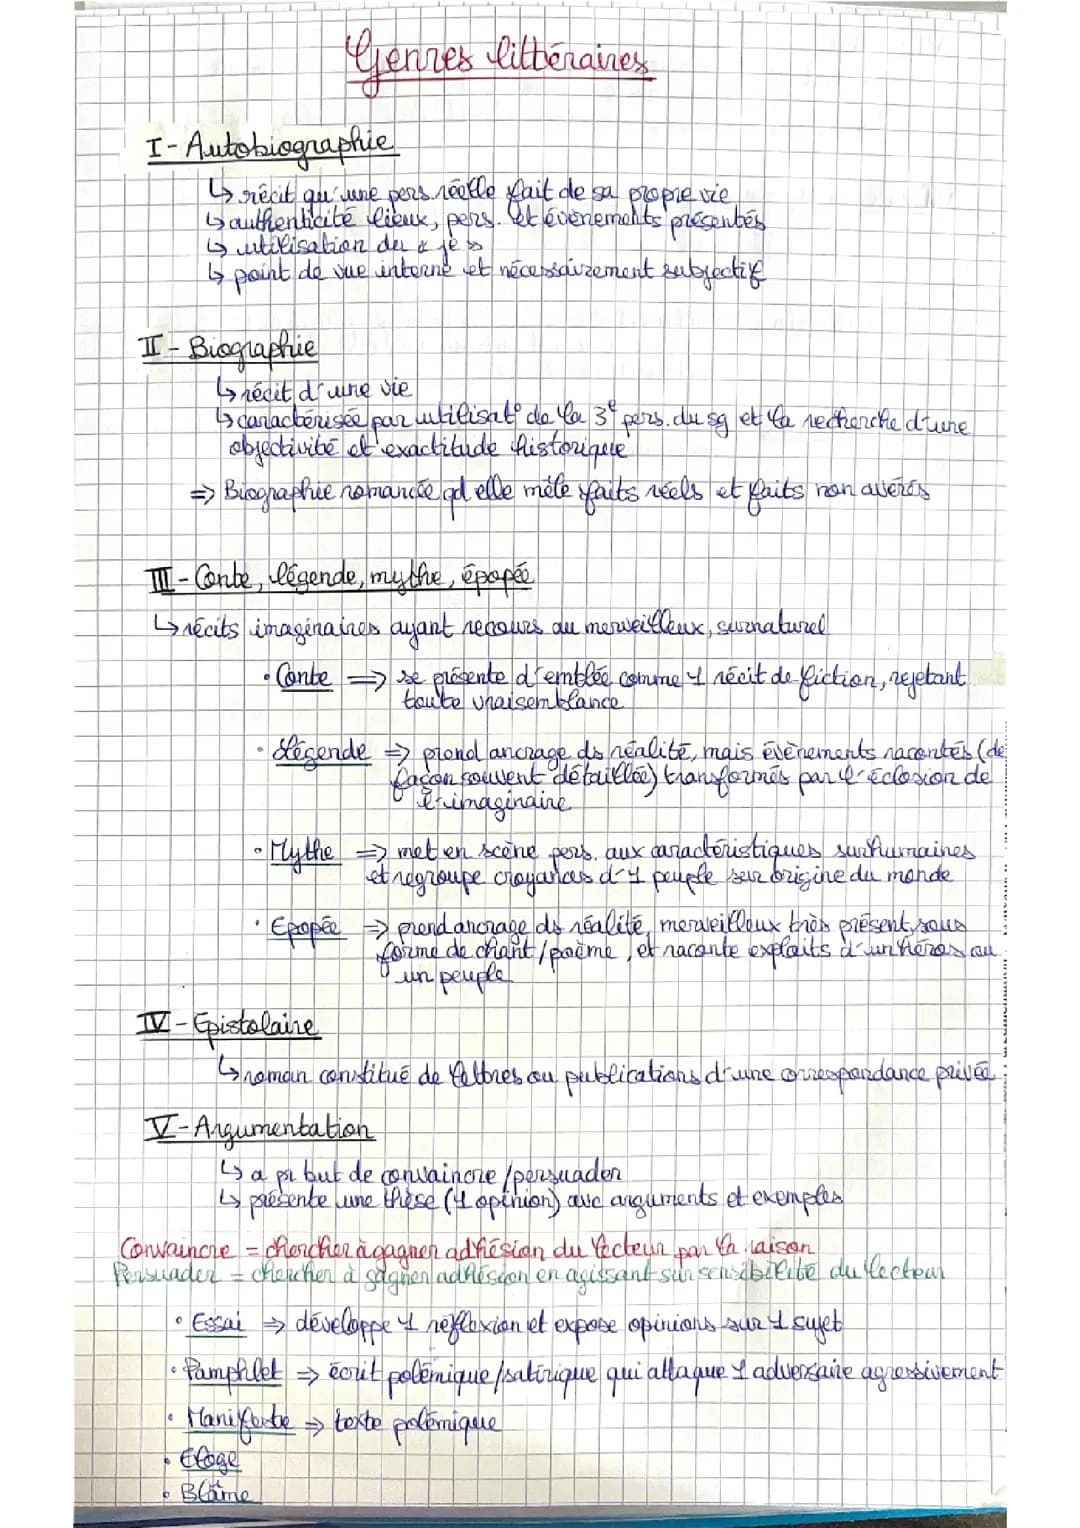 Genres littéraires
I - Autobiographie
↳ récit qu'une pers. réelle fait de sa propre vie
↳ authenticité lieux, pers. et évènements présentés
↳ utilisation du « je »
↳ point de vue interne et nécessairement subjectif
II - Biographie
↳ récit d'une vie
↳ caractérisée par utilisat° de la 3e pers. du sg et la recherche d'une
objectivité et exactitude historique
=> Biographie romancée qd elle mêle faits réels et faits non avérés
III - Conte, légende, mythe, épopée
↳ récits imaginaires ayant recours au merveilleux, surnaturel
• Conte => se présente d'emblée comme 1 récit de fiction, rejetant
toute vraisemblance
• Légende => prend ancrage ds réalité, mais évènements racontés (de
façon souvent détaillée) transformés par l'éclosion de
l'imaginaire
• Mythe => met en scène pers. aux caractéristiques surhumaines
et regroupe croyances d'1 peuple sur origine du monde
• Epopée => prend ancrage ds réalité, merveilleux très présent, sous
forme de chant/poème, et raconte exploits d'un héros ou
un peuple
IV - Epistolaire
↳ roman constitué de lettres ou publications d'une correspondance privée
V - Argumentation
↳ a pr but de convaincre/persuader
↳ présente une thèse (1 opinion) avc arguments et exemples
Convaincre = chercher à gagner adhésion du lecteur par la raison
Persuader = chercher à gagner adhésion en agissant sur sensibilité du lecteur
• Essai => développe 1 réflexion et expose opinions sur 1 sujet
• Pamphlet => écrit polémique/satirique qui attaque 1 adversaire agressivement
• Manifeste => texte polémique
• Eloge
• Blâme